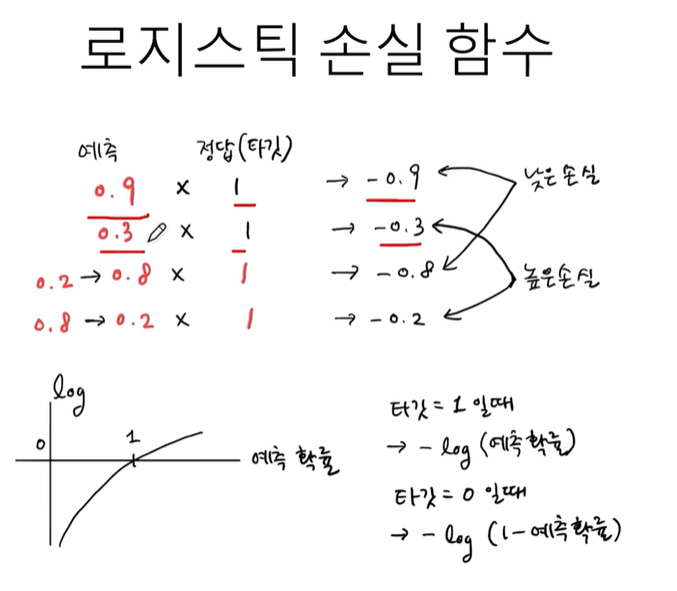 로지스틱 손실 함수
예측 정답(타깃)
0.9 × 1 → -0.9 낮은손실
0.3 × 1 → -0.3
0.2 → 0.8 × 1 → -0.8 높은손실
0.8 → 0.2 × 1 → -0.2
log
0 1 예측 확률
타깃 = 1 일때
→ - log (예측확률)
타깃 = 0 일때
→ - log (1-예측확률)